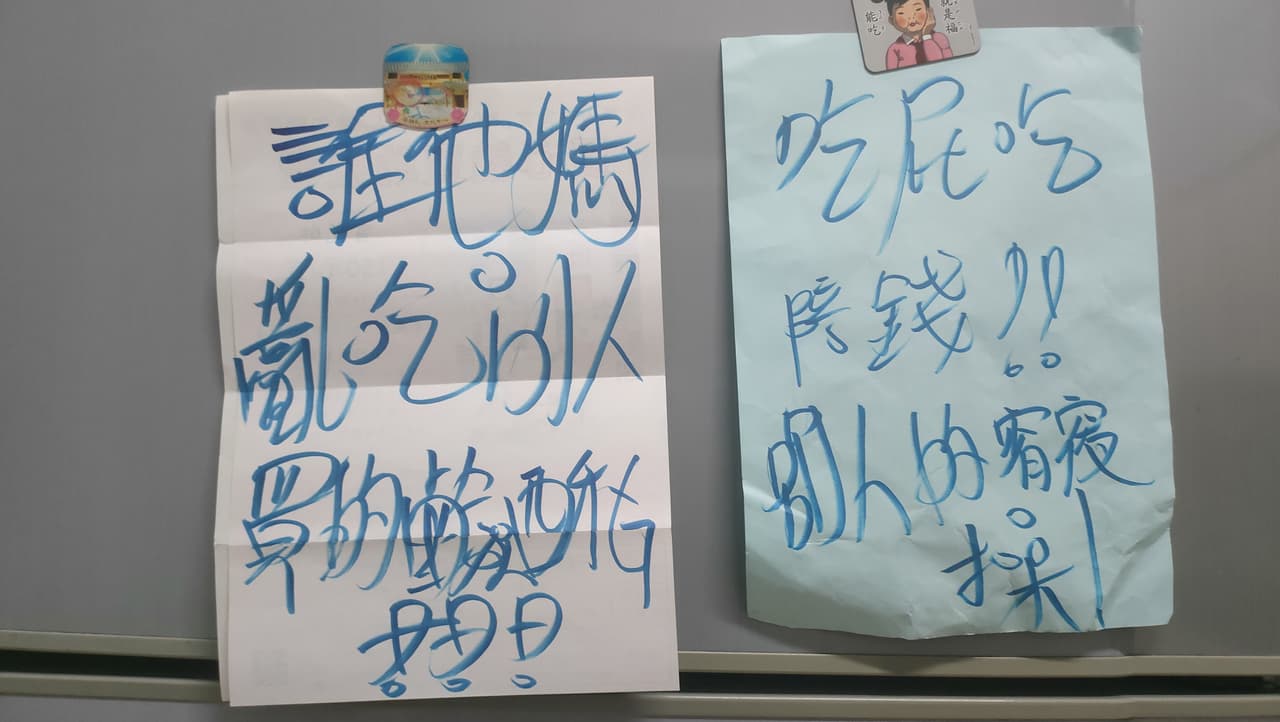 能吃
就是福
誰他媽
亂吃別人
買的鹹酥ㄐ
???
吃屁吃
陪錢!!
別人的宵夜
操!